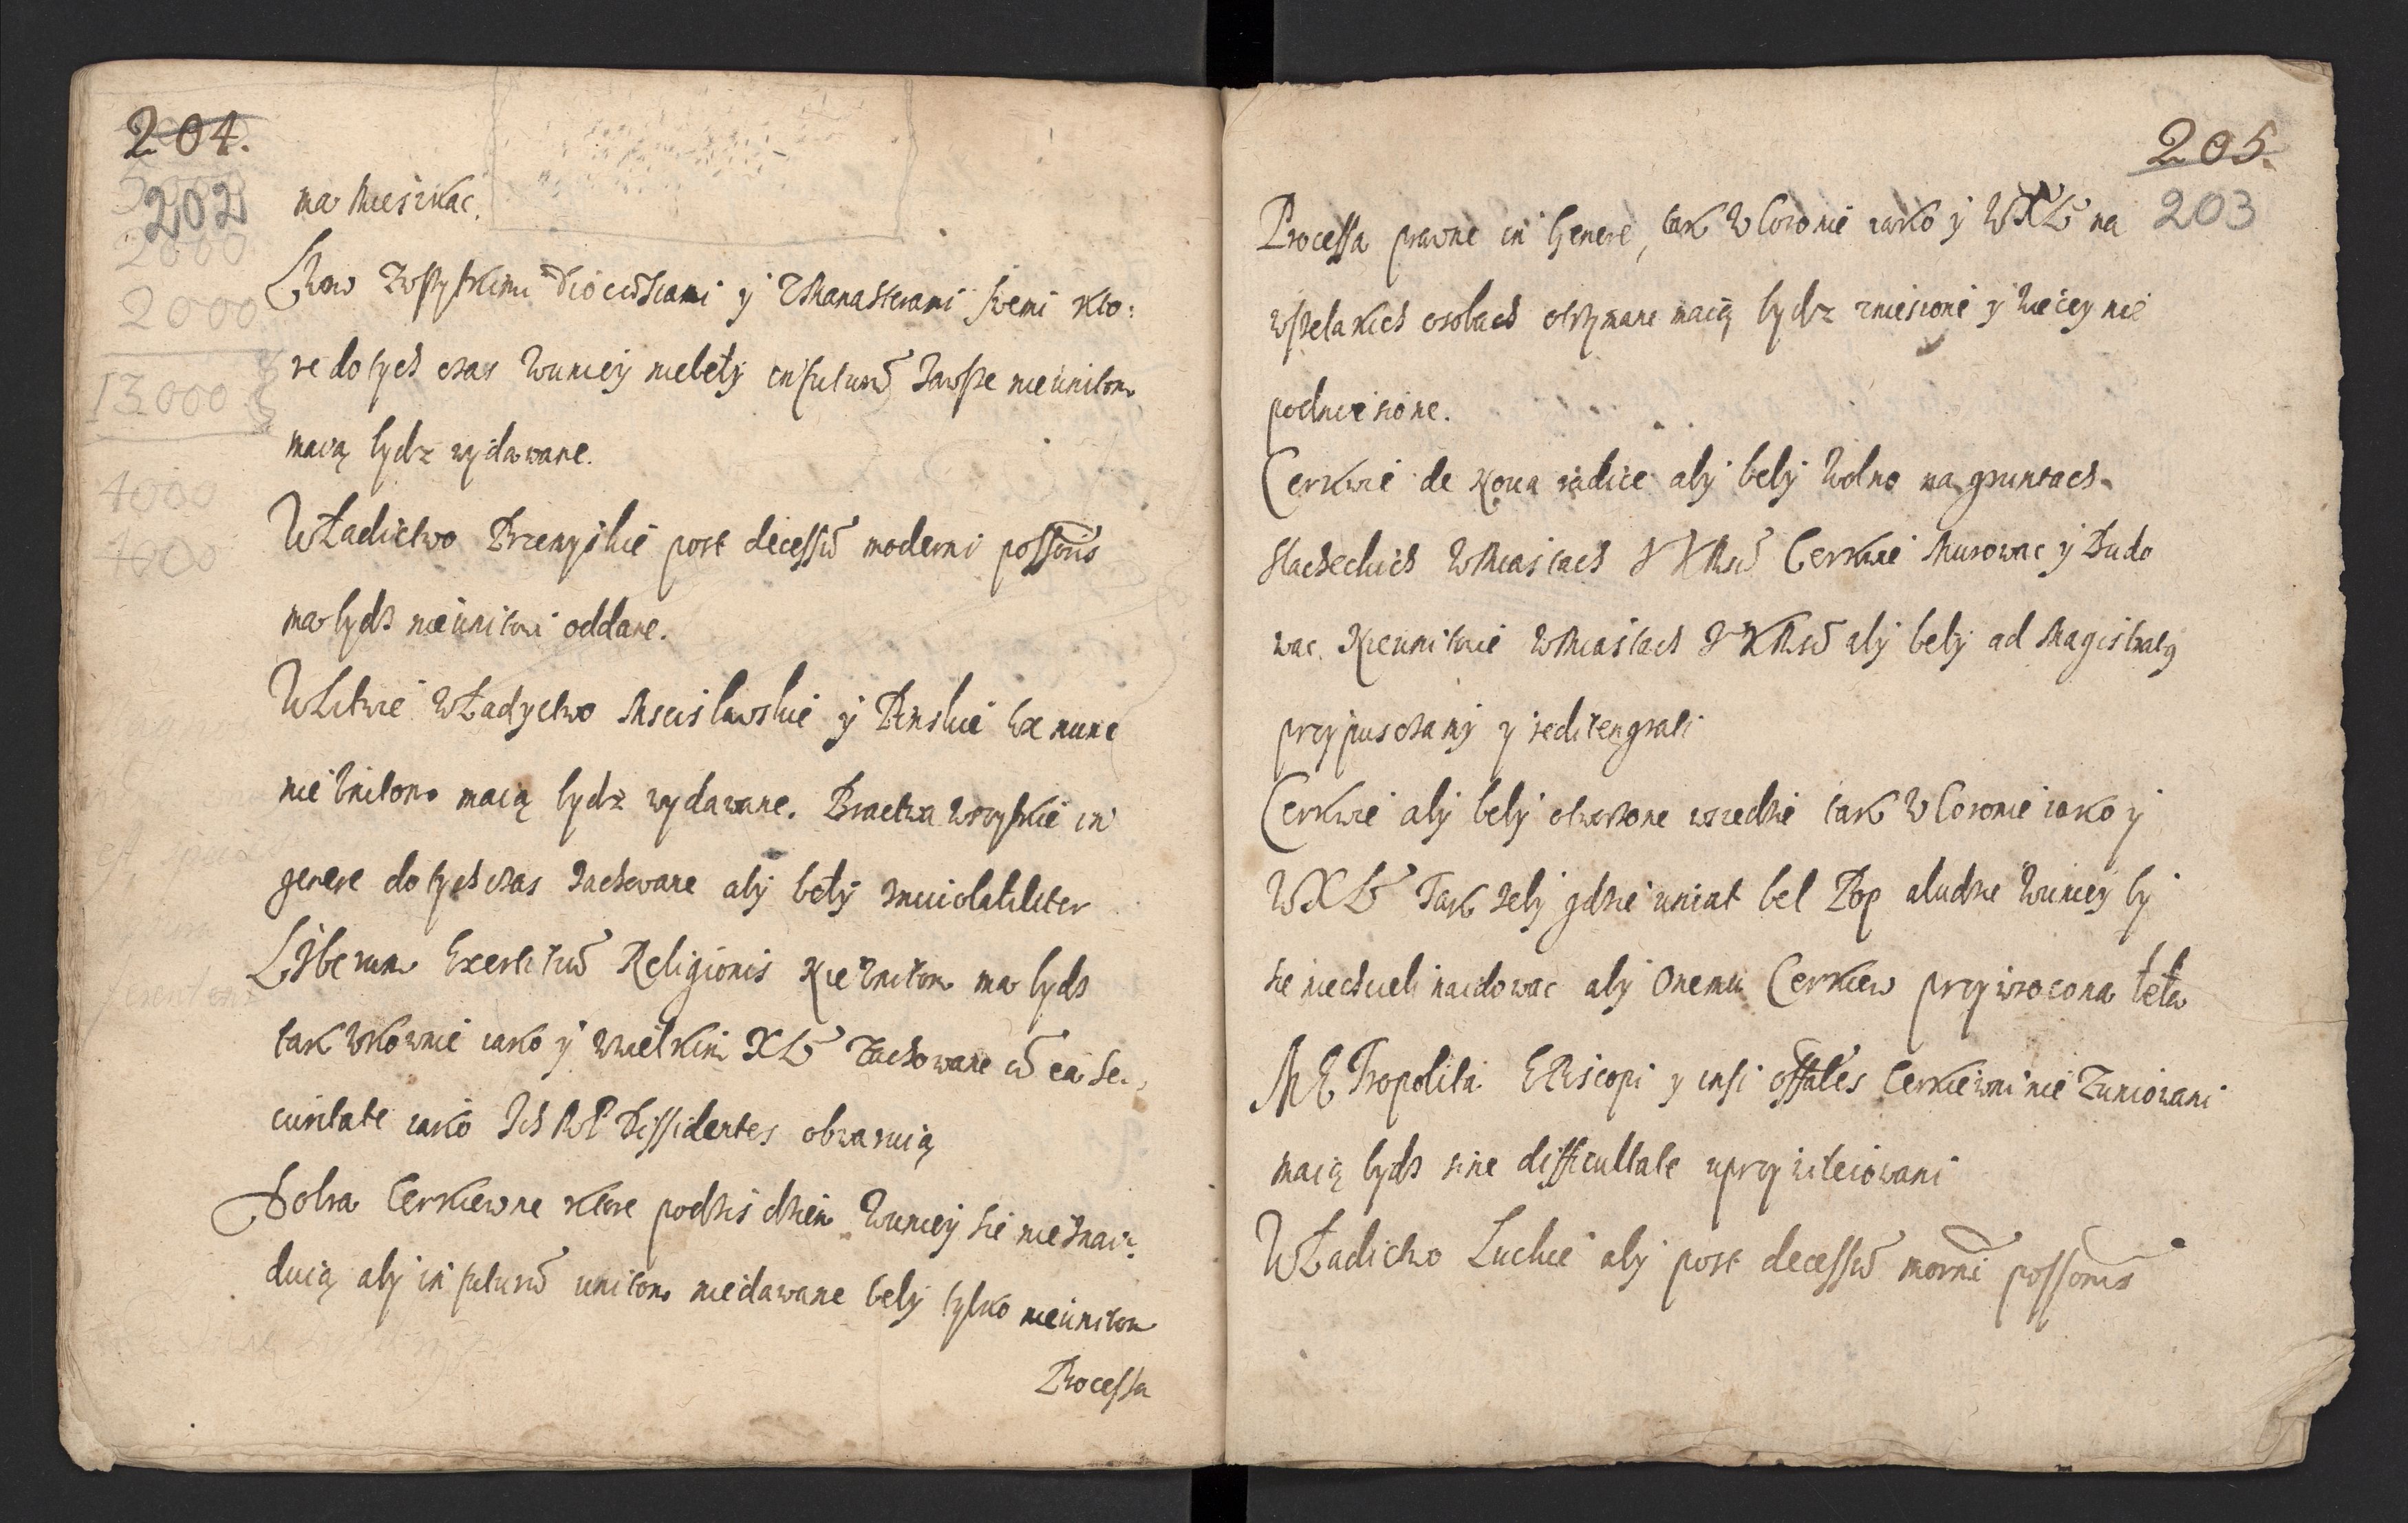 204.
202
2000
2000
13000
4000
4000
ma Mieszkac.
Lwow Zwszytkimi Diocezÿami ÿ ZManasterami swemi kto:
re do tych czas Wuniey niebełÿ in futurū Zawsze nieunitom
maią bydz wydawane.
Władictwo Przemÿslkie post decessū moderni possoris
ma bydz nieunitowi oddane.
WLitwie Władyctwo Mscislawskie ÿ Pinskie ex nunc
nie Unitom maią bydz wydawane. Bractwa wszytkie in
genere do tych czas zachowane abÿ bełÿ Inuiolabiliter
Liberum Exercitiū Religionis Nie Unitom ma bydz
tak Wkownie iako ÿ Wielkim XL Zachowane cū ea se,
curitate iako Ich PP Dissidentes obwaruią
Dobra Cerkiewne ktore podzis dzien Wuniey sie nie Znai:
duią abÿ in futurū unitom niedawane belÿ tylko nieunitom
Processa
205.
203
Processa prawne in Genere, tak W Coronie iako ÿ WXL na
wszelakich osobach otrzymane maią bydz zniesione ÿ wiecey nie
podniesione.
Cerkwie de Noua radice abÿ belÿ Wolno na gruntach
slacheckich WMiastach JKMsci Cerkwie Murowac ÿ Budo
wac Nieunitowie WMiastach JKMsci abÿ belÿ ad Magistraty
przypuszczanÿ ÿ reditengrati
Cerkwie abÿ belÿ otworzone wszedzie tak W Coronie iako ÿ
WXL Tak zebÿ gdzie uniat bel Pop a ludzie Wuniey bÿ
sie niechcieli naidowac abÿ Onemu Cerkiew przywrocona beła
METropolita EPiscopi y insi offales Cerkiewni nie Zuniowani
maią bydz sine difficultate uprzywileiowani
Władictwo Luckie abÿ post decessū morni possoris